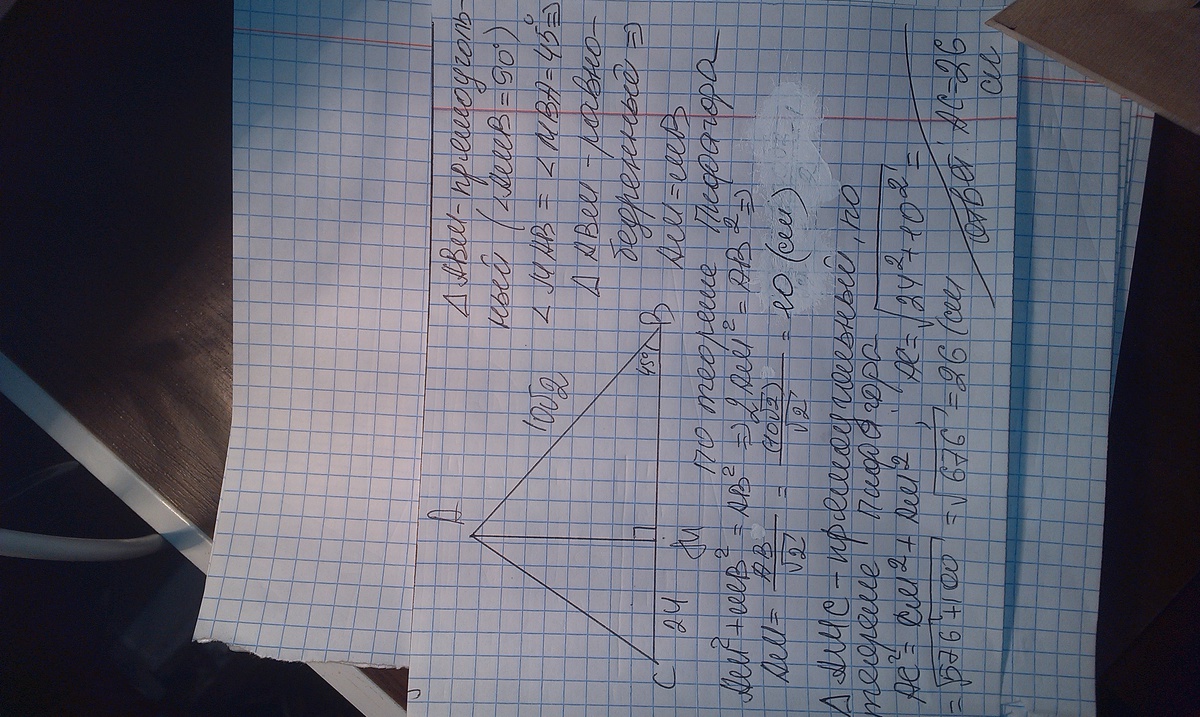 A
10√2
45°
C
24
M
B
△ ABM - прямоуголь-
ный (∠AMB = 90°)
∠ MAB = ∠ MBA = 45° ⇒
△ ABM - равно-
бедренный ⇒
AM = MB
по теореме Пифагора
AM² + MB² = AB² ⇒ 2AM² = AB² ⇒
AM = AB/√2 = (10√2)/√2 = 10 (см)
△ AMC - прямоугольный, по
теореме Пифагора
AC² = CM² + AM², AC = √24² + 10² =
= √576 + 100 = √676 = 26 (см
Ответ: AC = 26
см